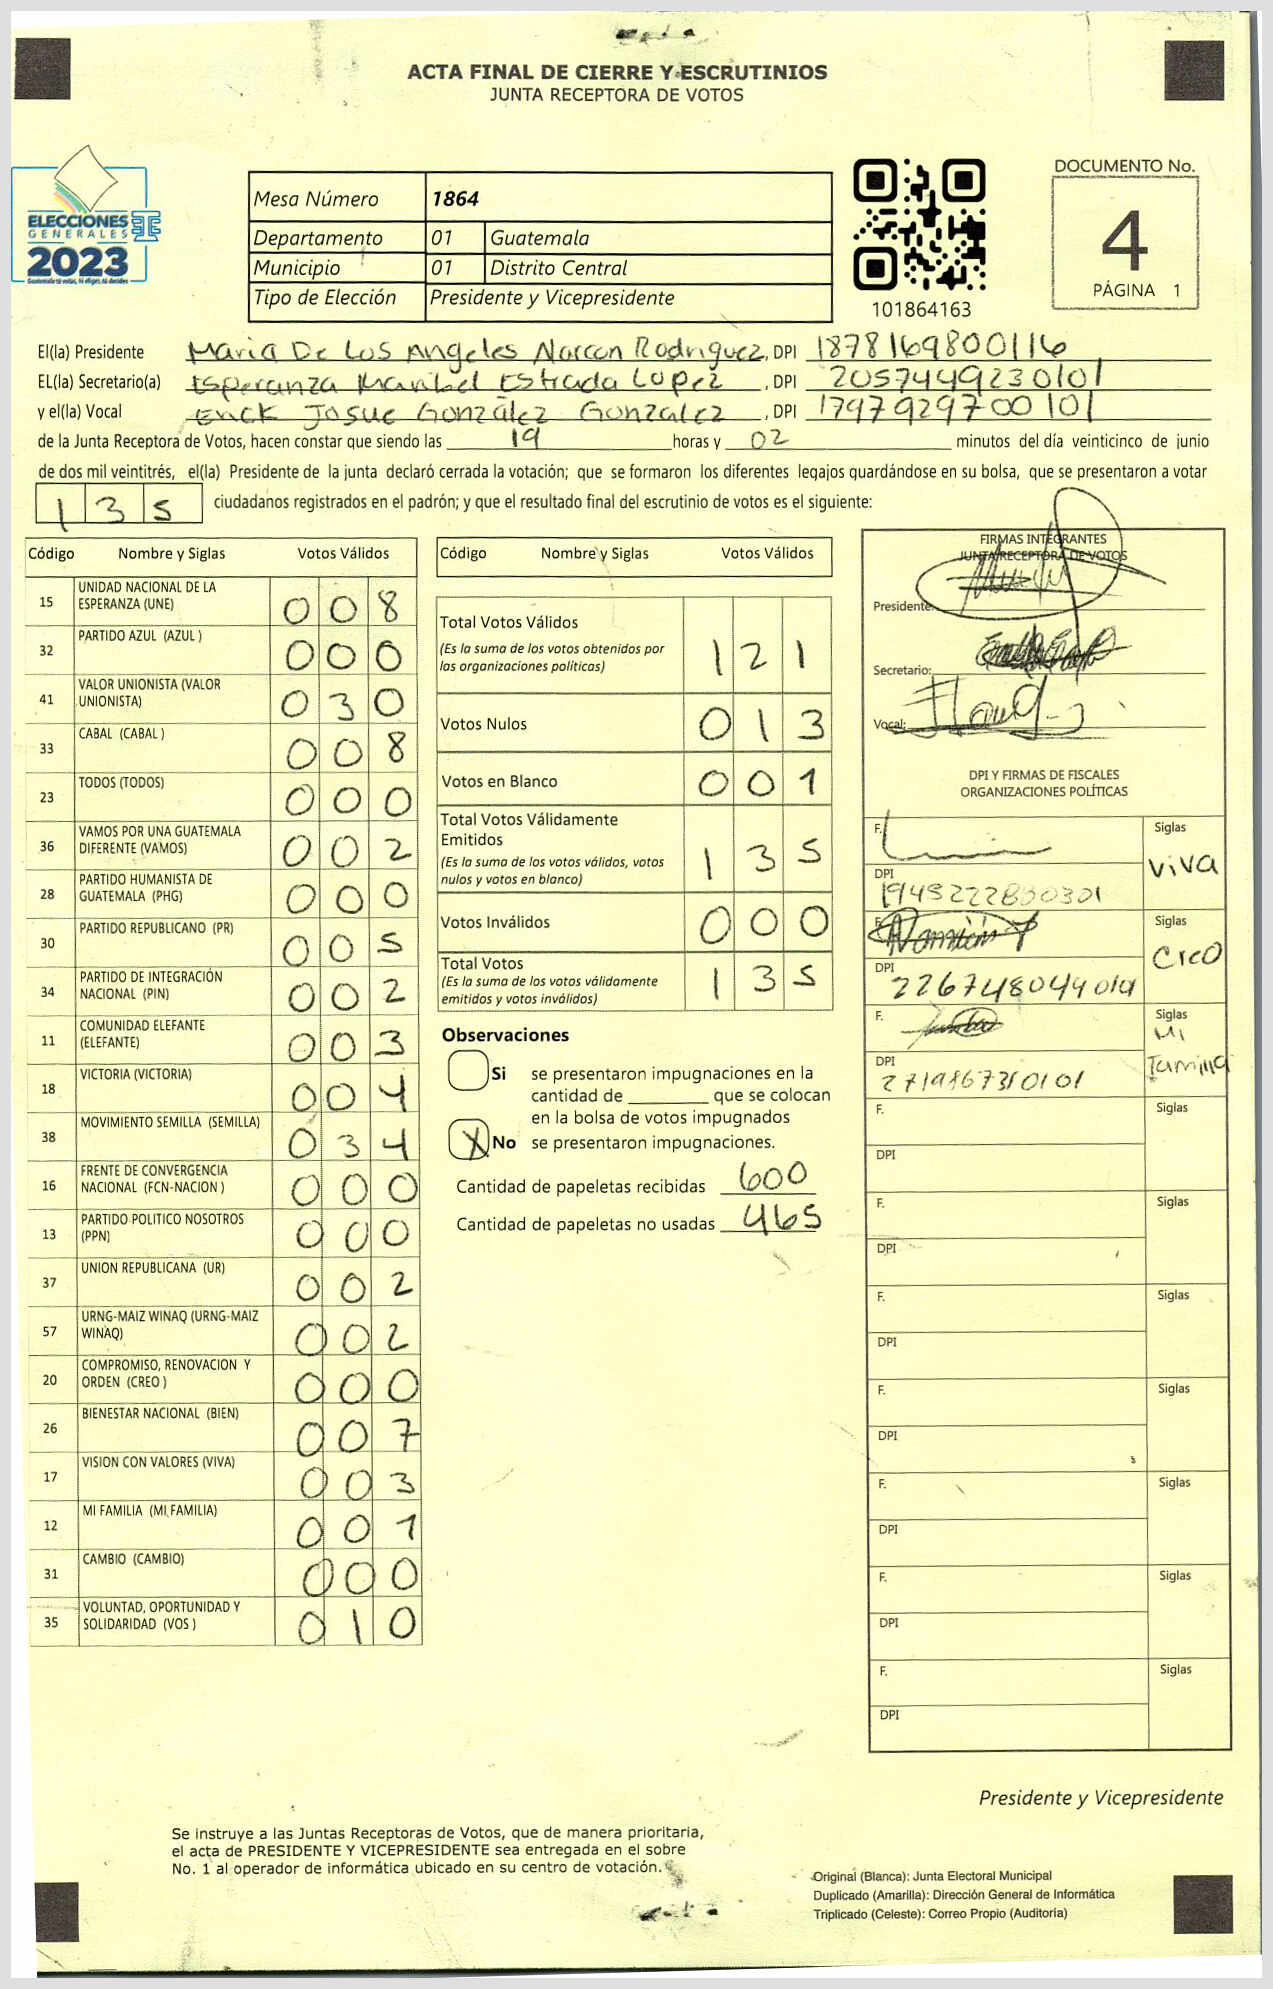 ACTA FINAL DE CIERRE Y ESCRUTINIOS
JUNTA RECEPTORA DE VOTOS
ELECCIONES
GENERALES
2023
Mesa Número 1864
Departamento 01 Guatemala
Municipio 01 Distrito Central
Tipo de Elección Presidente y Vicepresidente
101864163
DOCUMENTO No.
4
PÁGINA 1
El(la) Presidente Maria De Los Angeles Norcon Rodriguez, DPI 1878169800116
EL(la) Secretario(a) Esperanza Maribel Estrada Lopez, DPI 2057449230101
y el(la) Vocal Erick Josue González Gonzalez, DPI 1797929700101
de la Junta Receptora de Votos, hacen constar que siendo las 19 horas y 02 minutos del día veinticinco de junio
de dos mil veintitrés, el(la) Presidente de la junta declaró cerrada la votación; que se formaron los diferentes legajos quardándose en su bolsa, que se presentaron a votar
135 ciudadanos registrados en el padrón; y que el resultado final del escrutinio de votos es el siguiente:
Código Nombre y Siglas Votos Válidos
15 UNIDAD NACIONAL DE LA ESPERANZA (UNE) 008
32 PARTIDO AZUL (AZUL ) 000
41 VALOR UNIONISTA (VALOR UNIONISTA) 030
33 CABAL (CABAL ) 008
23 TODOS (TODOS) 000
36 VAMOS POR UNA GUATEMALA DIFERENTE (VAMOS) 002
28 PARTIDO HUMANISTA DE GUATEMALA (PHG) 000
30 PARTIDO REPUBLICANO (PR) 005
34 PARTIDO DE INTEGRACIÓN NACIONAL (PIN) 002
11 COMUNIDAD ELEFANTE (ELEFANTE) 003
18 VICTORIA (VICTORIA) 004
38 MOVIMIENTO SEMILLA (SEMILLA) 034
16 FRENTE DE CONVERGENCIA NACIONAL (FCN-NACION ) 000
13 PARTIDO POLITICO NOSOTROS (PPN) 000
37 UNION REPUBLICANA (UR) 002
57 URNG-MAIZ WINAQ (URNG-MAIZ WINAQ) 002
20 COMPROMISO, RENOVACION Y ORDEN (CREO ) 000
26 BIENESTAR NACIONAL (BIEN) 007
17 VISION CON VALORES (VIVA) 003
12 MI FAMILIA (MI FAMILIA) 001
31 CAMBIO (CAMBIO) 000
35 VOLUNTAD, OPORTUNIDAD Y SOLIDARIDAD (VOS ) 010
Código Nombre y Siglas Votos Válidos
Total Votos Válidos 121
(Es la suma de los votos obtenidos por
las organizaciones políticas)
Votos Nulos 013
Votos en Blanco 001
Total Votos Válidamente
Emitidos 135
(Es la suma de los votos válidos, votos
nulos y votos en blanco)
Votos Inválidos 000
Total Votos 135
(Es la suma de los votos válidamente
emitidos y votos inválidos)
Observaciones
Si se presentaron impugnaciones en la
cantidad de ________ que se colocan
en la bolsa de votos impugnados
X No se presentaron impugnaciones.
Cantidad de papeletas recibidas 600
Cantidad de papeletas no usadas 465
FIRMAS INTEGRANTES
JUNTA RECEPTORA DE VOTOS
Presidente:
Secretario:
Vocal:
DPI Y FIRMAS DE FISCALES
ORGANIZACIONES POLÍTICAS
F. Siglas
viva
DPI
F. Siglas
Creo
DPI
F. Siglas
Mi
Familia
DPI
F. Siglas
DPI
F. Siglas
DPI
F. Siglas
DPI
F. Siglas
DPI
F. Siglas
DPI
F. Siglas
DPI
F. Siglas
DPI
Presidente y Vicepresidente
Se instruye a las Juntas Receptoras de Votos, que de manera prioritaria,
el acta de PRESIDENTE Y VICEPRESIDENTE sea entregada en el sobre
No. 1 al operador de informática ubicado en su centro de votación.
Original (Blanca): Junta Electoral Municipal
Duplicado (Amarilla): Dirección General de Informática
Triplicado (Celeste): Correo Propio (Auditoría)